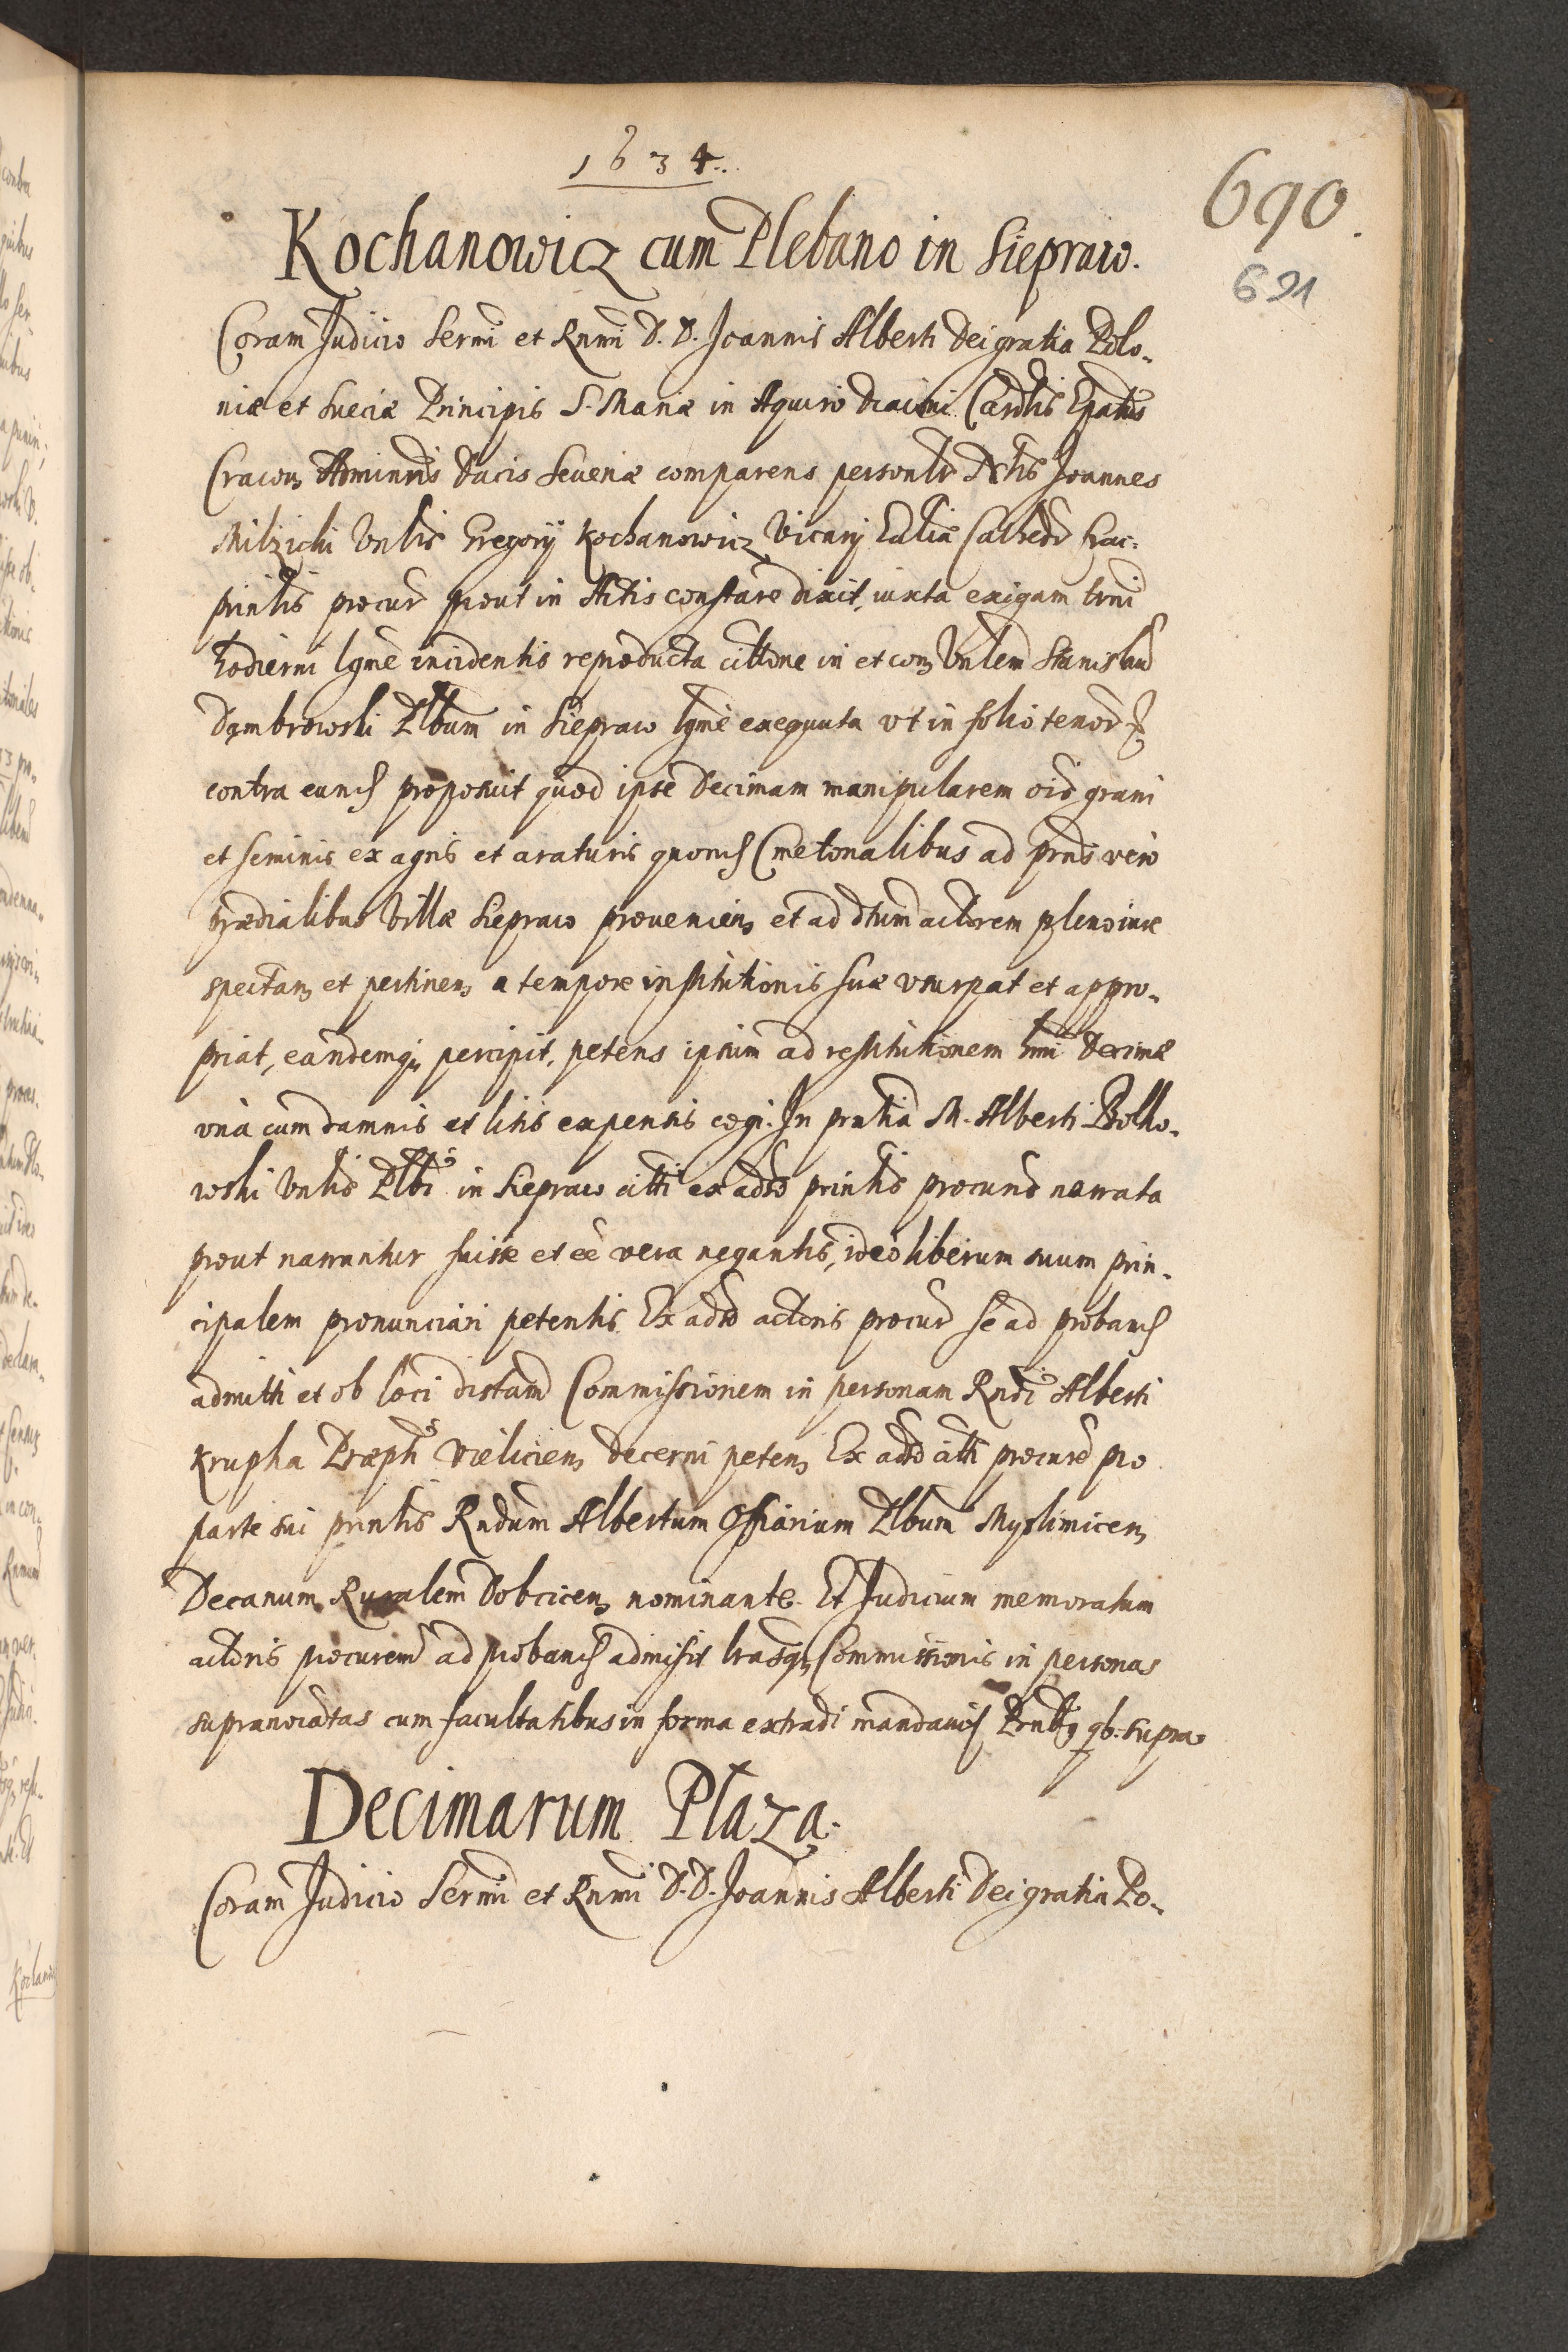 1634.
690.
691
Kochanowicz cum Plebano in Siepraw.
Coram Judicio Sermi et Rnmi D. D. Joannis Alberti Dei gratia Polo-
niæ et Sueciæ Principis S. Mariæ in Aquiro Diaconi Cardlis Epatus
Cracov Adminris Ducis Severiæ comparens personlr Joannes
Milzicki Vnlis Gregorij Kochanowicz Vicarij Ecclia Cathedr Crac:
prinlis procur prout in Actis constare dixit, iuxta exigam trmi
hodierni lgme incidentis reproducta cittone in et con Vnlem Stanislaum
Dąmbrowski Plbum in Siepraw lgme exequuta vt in folio tenor
contra eund proposuit quod ipse Decimam manipularem ois grani
et seminis ex agris et araturis quond Cmetonalibus ad prns vero
prædialibus Villæ Siepraw provenien et ad dtum actorem pleno iure
spectan et pertinen a tempore institutionis suæ vsurpat et appro-
priat, eandemq percipit, petens ipsum ad restitutionem hmi Decimæ
vna cum damnis et litis expensis cogi. In prntia M. Alberti Bolko-
wski Vnlis Plbi in Siepraw citti ex adso prinlis procuris narrata
prout narrantur fuisse et ee vera negantis, ideo liberum suum prin-
cipalem pronunciari petentis. Ex adso actoris procur se ad proband
admitti et ob loci distam Commissionem in personam Rndi Alberti
Krupka Præpti Vieliciens decerni peten Ex adso citti procure pro
parte sui prinlis Rndum Albertum Offiarium Plbum Myslimicen
Decanum Ruralem Dobcicen nominante. Et Judicium memoratum
actoris procurem ad proband admisit lrasq Commissionis in personas
supranoiatas cum facultatibus in forma extradi mandavit Prntbq qb. supra
Decimarum Plaza.
Coram Judicio Sermi et Rnmi D. D. Joannis Alberti Dei gratia Po-